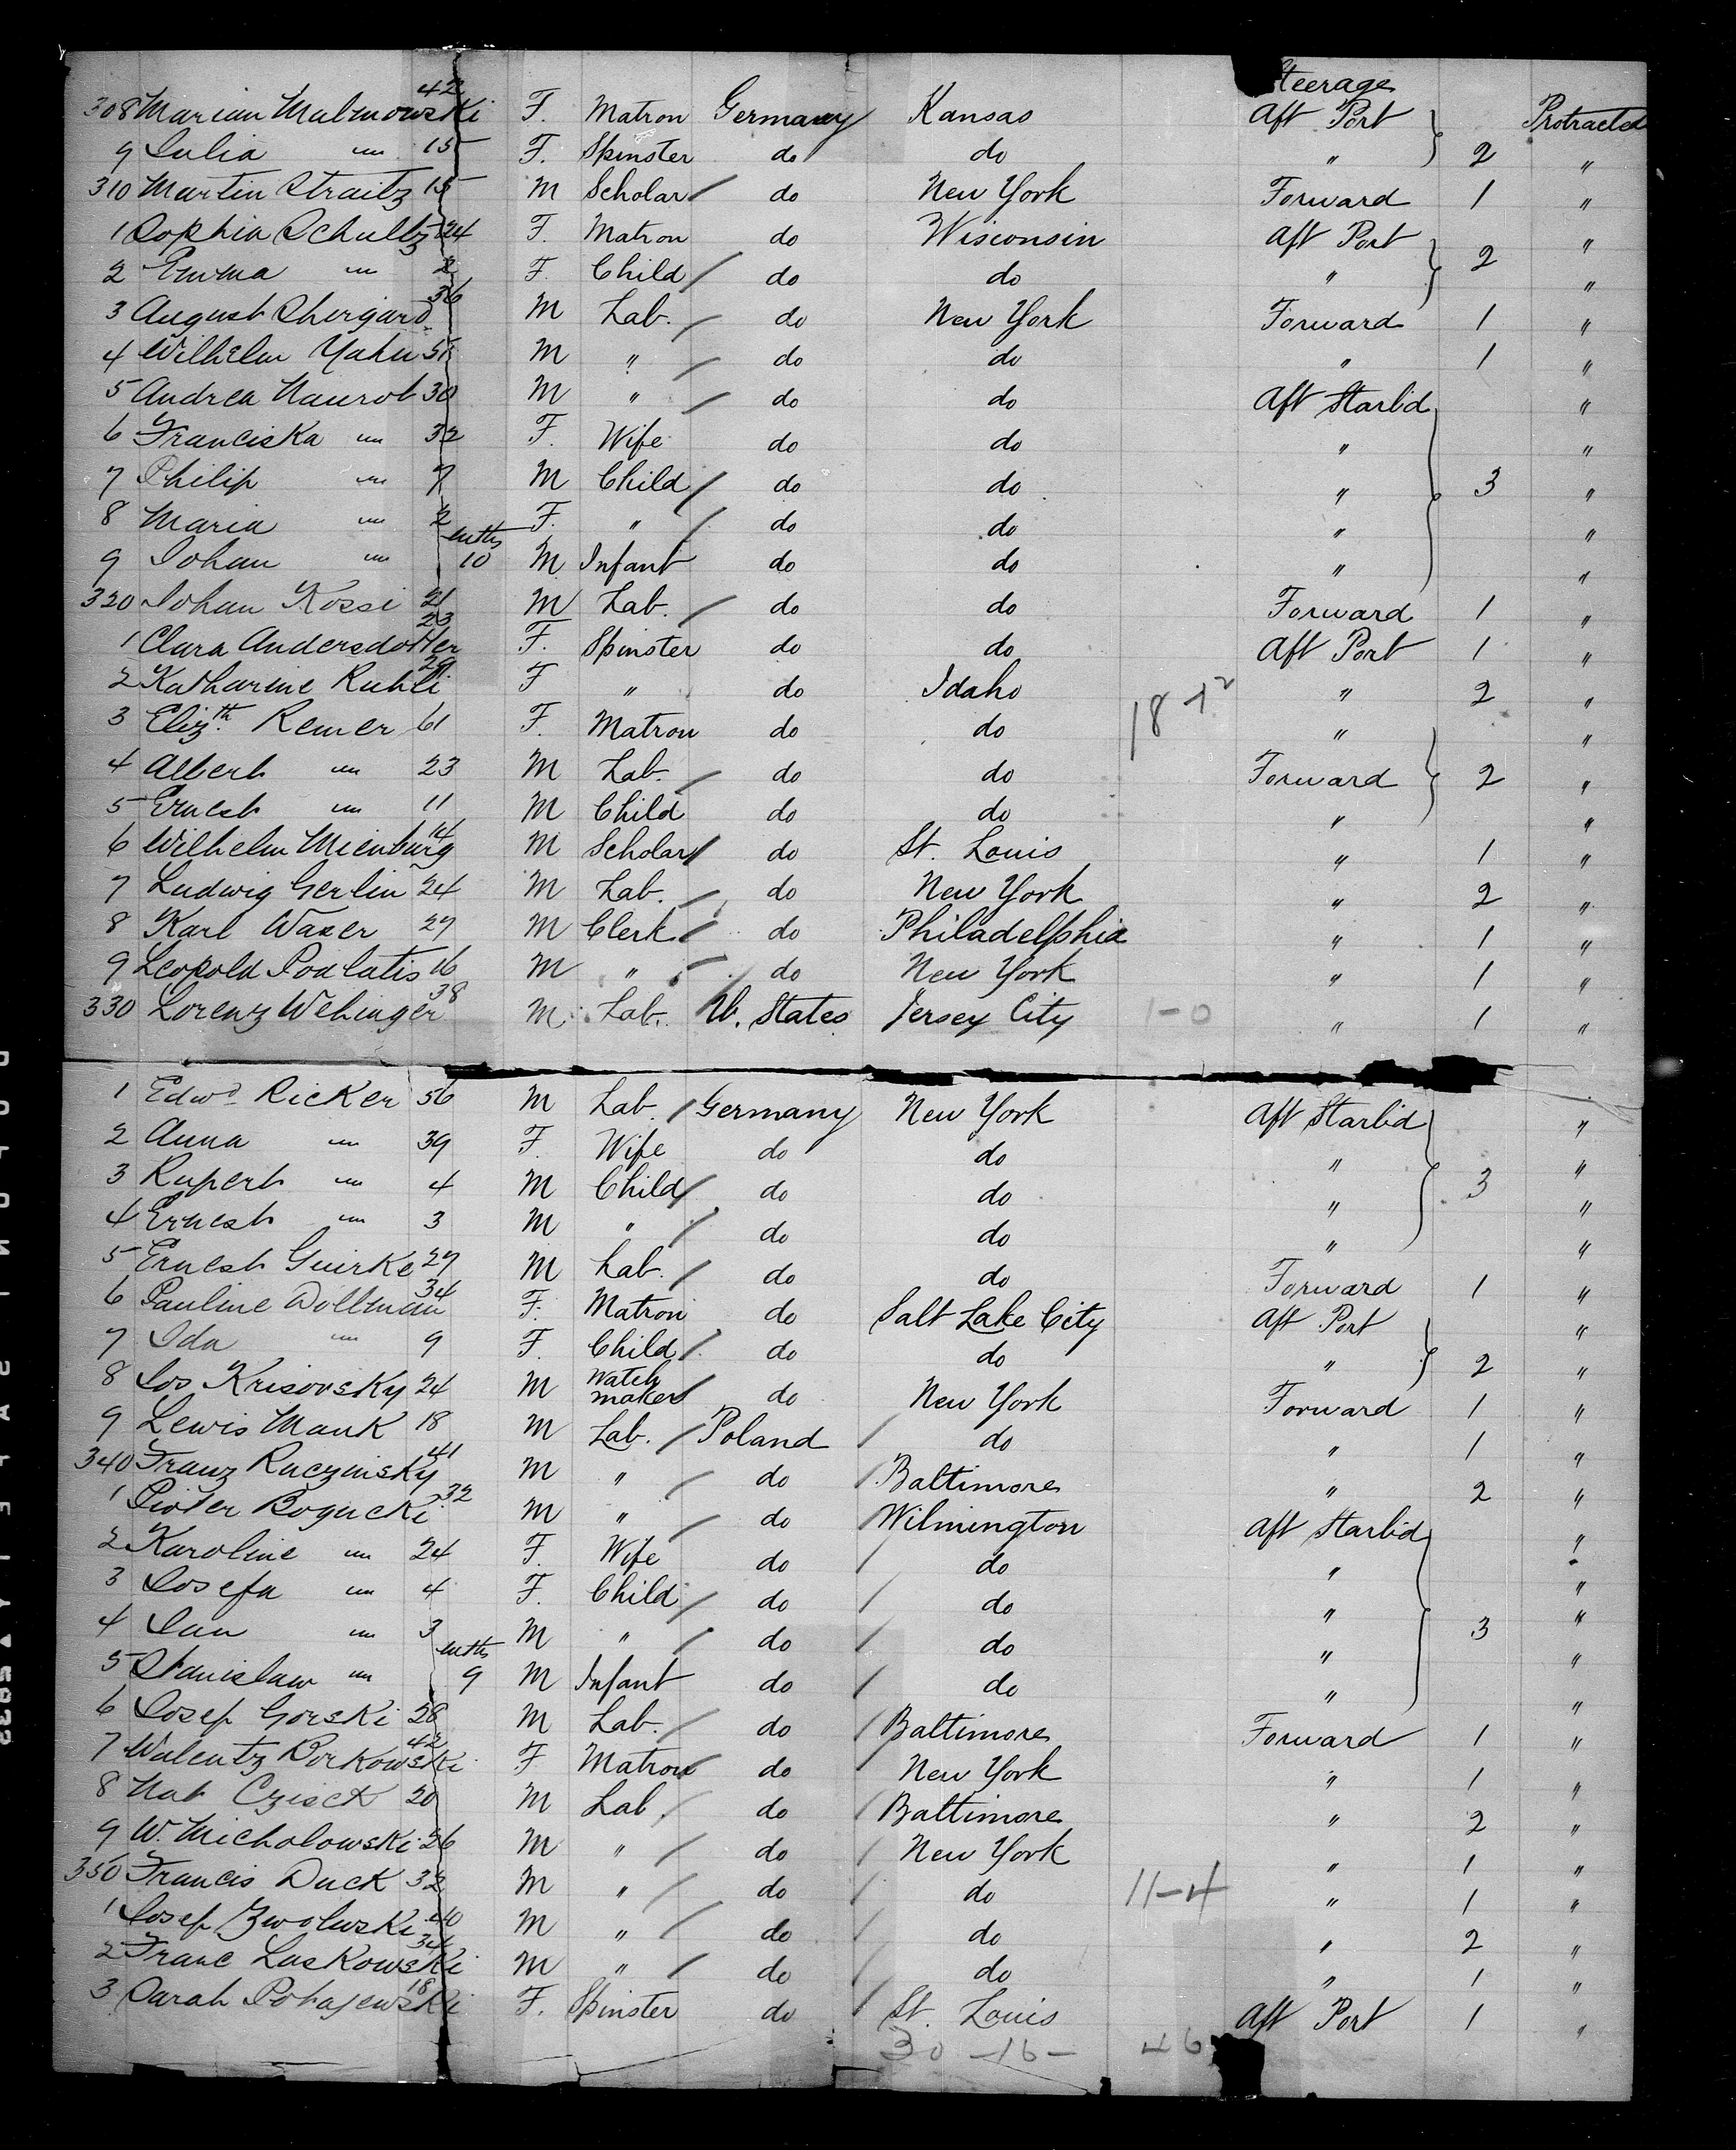 Steerage
308 Marian Malmowski 42 F. Matron Germany Kansas Aft Port Protracted
9 Julia " 15 F. Spinster do do " 2 "
310 Martin Straitz 15 M Scholar do New York Forward 1 "
1 Sophia Schultz 24 F. Matron do Wisconsin Aft Port "
2 Emma " 2 F. Child do do " 2 "
3 August Shergard 36 M Lab. do New York Forward 1 "
4 Wilhelm M " do do " 1 "
5 Andrea Naurot 30 M " do do Aft Starbd "
6 Franciska " 32 F. Wife do do " "
7 Philip " 7 M Child do do " 3 "
8 Maria " 2 F. " do do " "
9 Johan " mths 10 M Infant do do " "
320 Johan Kossi 21 M Lab. do do Forward 1 "
1 Clara Andersdotter 23 F. Spinster do do Aft Port 1 "
2 Katharine Ruhli 29 F " do Idaho " 2 "
3 Elizth. Remer 61 F. Matron do do " "
4 Albert " 23 M Lab. do do Forward 2 "
5 Ernest " 11 M Child do do " "
6 Wilhelm Mienburg 14 M Scholar do St. Louis " 1 "
7 Ludwig Gerlin 24 M Lab. do New York " 2 "
8 Karl Waser 27 M Clerk do Philadelphia " 1 "
9 Leopold 16 M " do New York " 1 "
330 Lorenz Wehinger 38 M Lab. U. States Jersey City 1-0 " 1 "
1 Edwd Ricker 56 M Lab. Germany New York Aft Starbd "
2 Anna " 39 F. Wife do do " "
3 Rupert " 4 M Child do do " 3 "
4 Ernest " 3 M " do do " "
5 Ernest Guirke 27 M Lab. do do Forward 1 "
6 Pauline Dollman 34 F. Matron do Salt Lake City Aft Port "
7 Ida " 9 F. Child do do " 2 "
8 Jos Krisovsky 24 M Watch maker do New York Forward 1 "
9 Lewis Mank 18 M Lab. Poland do " 1 "
340 Franz Ruczinsky 41 M " do Baltimore " 2 "
1 Pioter Bogucki 32 M " do Wilmington Aft Starbd "
2 Karoline " 24 F. Wife do do " "
3 Josefa " 4 F. Child do do " "
4 Jan " 3 M " do do " 3 "
5 Stanislaw " mths 9 M Infant do do " "
6 Josef Gorski 28 M Lab. do Baltimore Forward 1 "
7 Walentz Borkowski 42 F Matron do New York " 1 "
8 Nat 20 M Lab. do Baltimore " 2 "
9 W. Micholowski 26 M " do New York " 1 "
350 Francis Duck 32 M " do do 11-4 " 1 "
1 Josef Zwolwski 40 M " do do " 2 "
2 Franc Laskowski 34 M " do do " 1 "
3 Sarah Potajewski 18 F. Spinster do St. Louis Aft Port 1 "
30 -16- 46